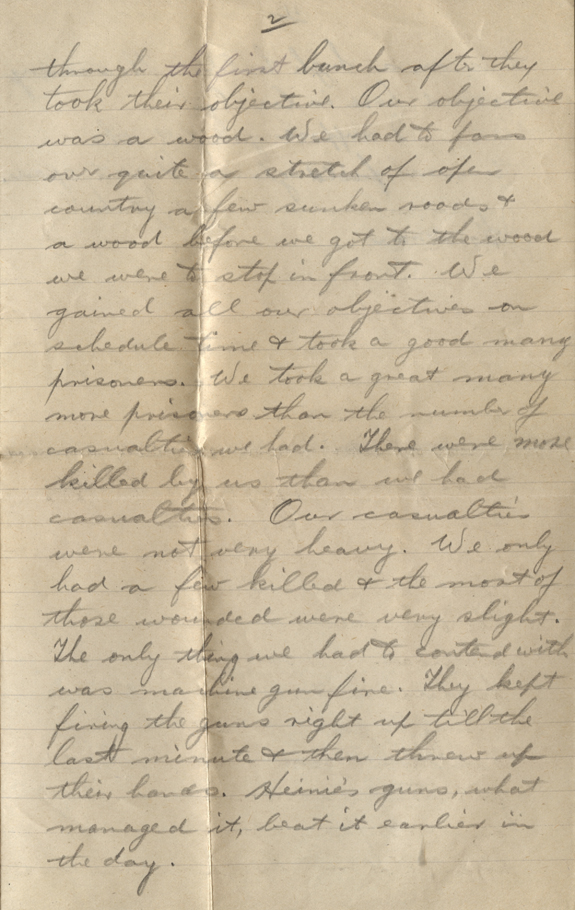 2
through the first bunch after they
took their objective. Our objective
was a wood. We had to pass
over quite a stretch of open
country a few sunken roads &
a wood before we got to the wood
we were to stop in front. We
gained all our objectives on
schedule time & took a good many
prisoners. We took a great many
more prisoners than the number of
casualties we had. There were more
killed by us than we had
casualties. Our casualties
were not very heavy. We only
had a few killed & the most of
those wounded were very slight.
The only thing we had to contend with
was machine gun fire. They kept
firing the guns right up till the
last minute & then threw up
their hands. Heinie's guns, what
managed it, beat it earlier in
the day.